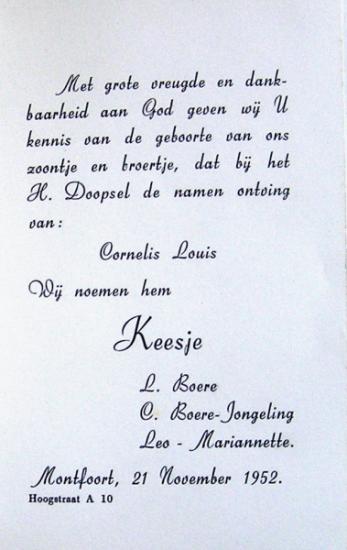 Met grote vreugde en dank-
baarheid aan God geven wij U
kennis van de geboorte van ons
zoontje en broertje, dat bij het
H. Doopsel de namen ontving
van:
Cornelis Louis
Wij noemen hem
Keesje
L. Boere
C. Boere-Jongeling
Leo - Mariannette.
Montfoort, 21 November 1952.
Hoogstraat A 10